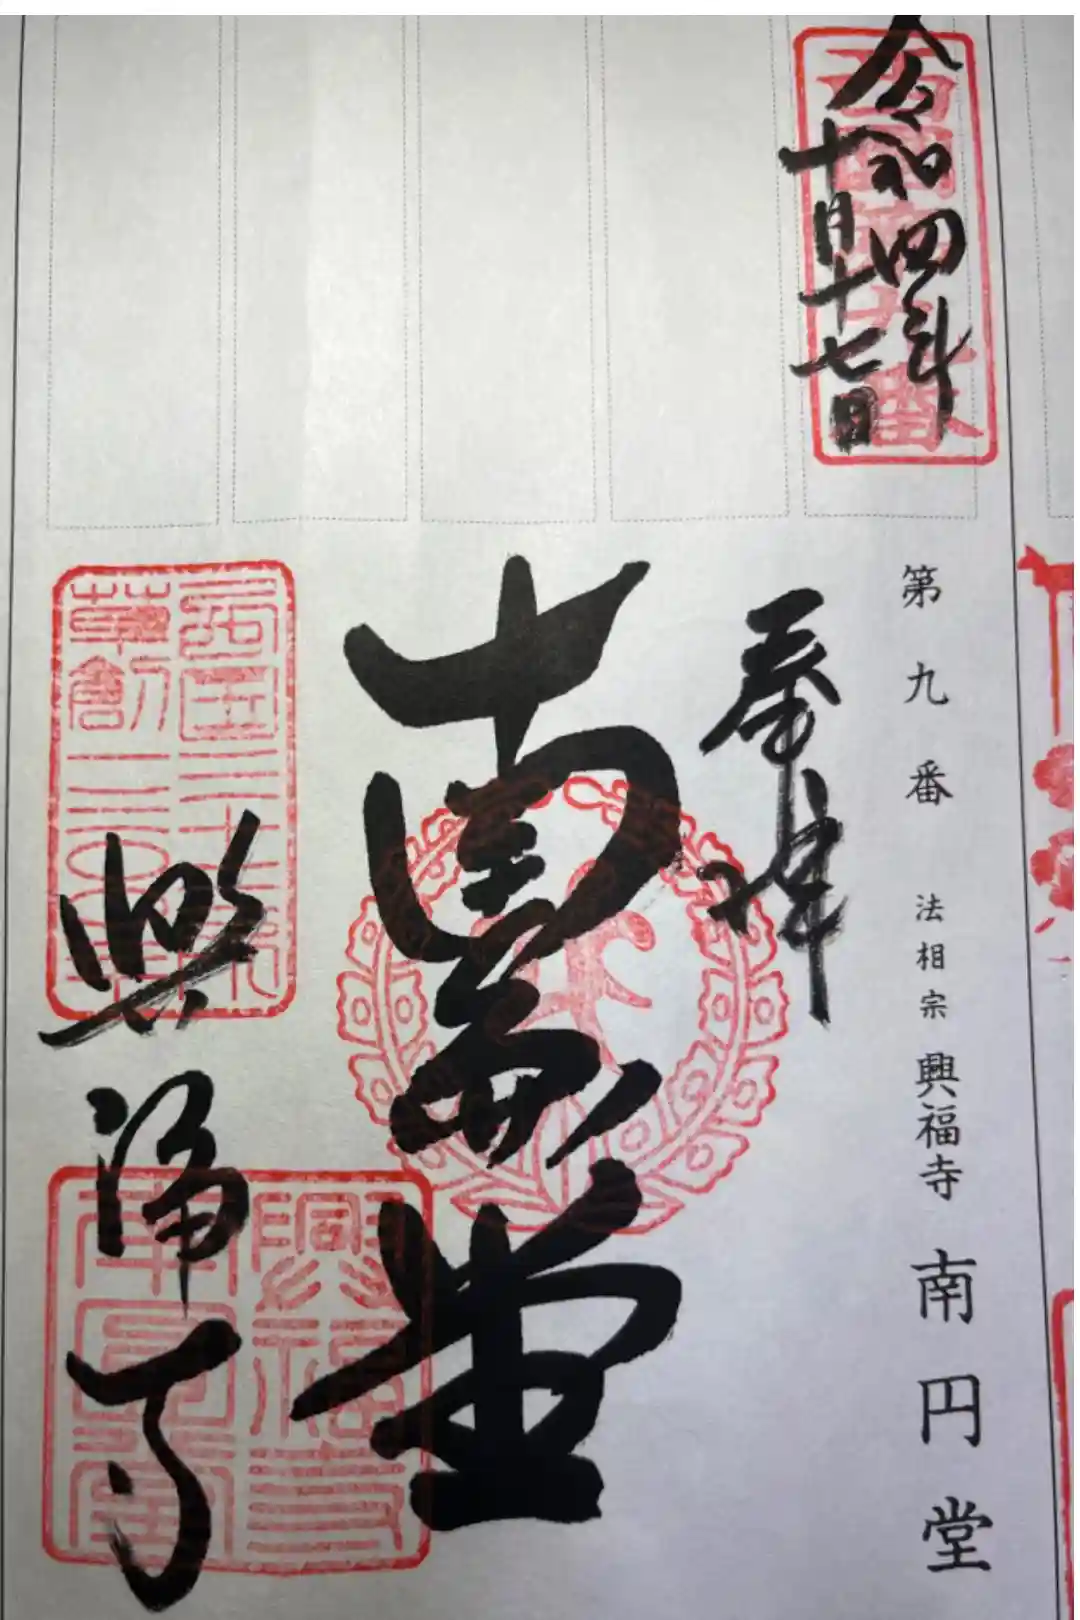 第九番 法相宗 興福寺 南円堂
西国第九番
令和四年
十月十七日
奉拝
南円堂
西国三十三所
草創一三〇〇年
興福寺
興福寺
南円堂